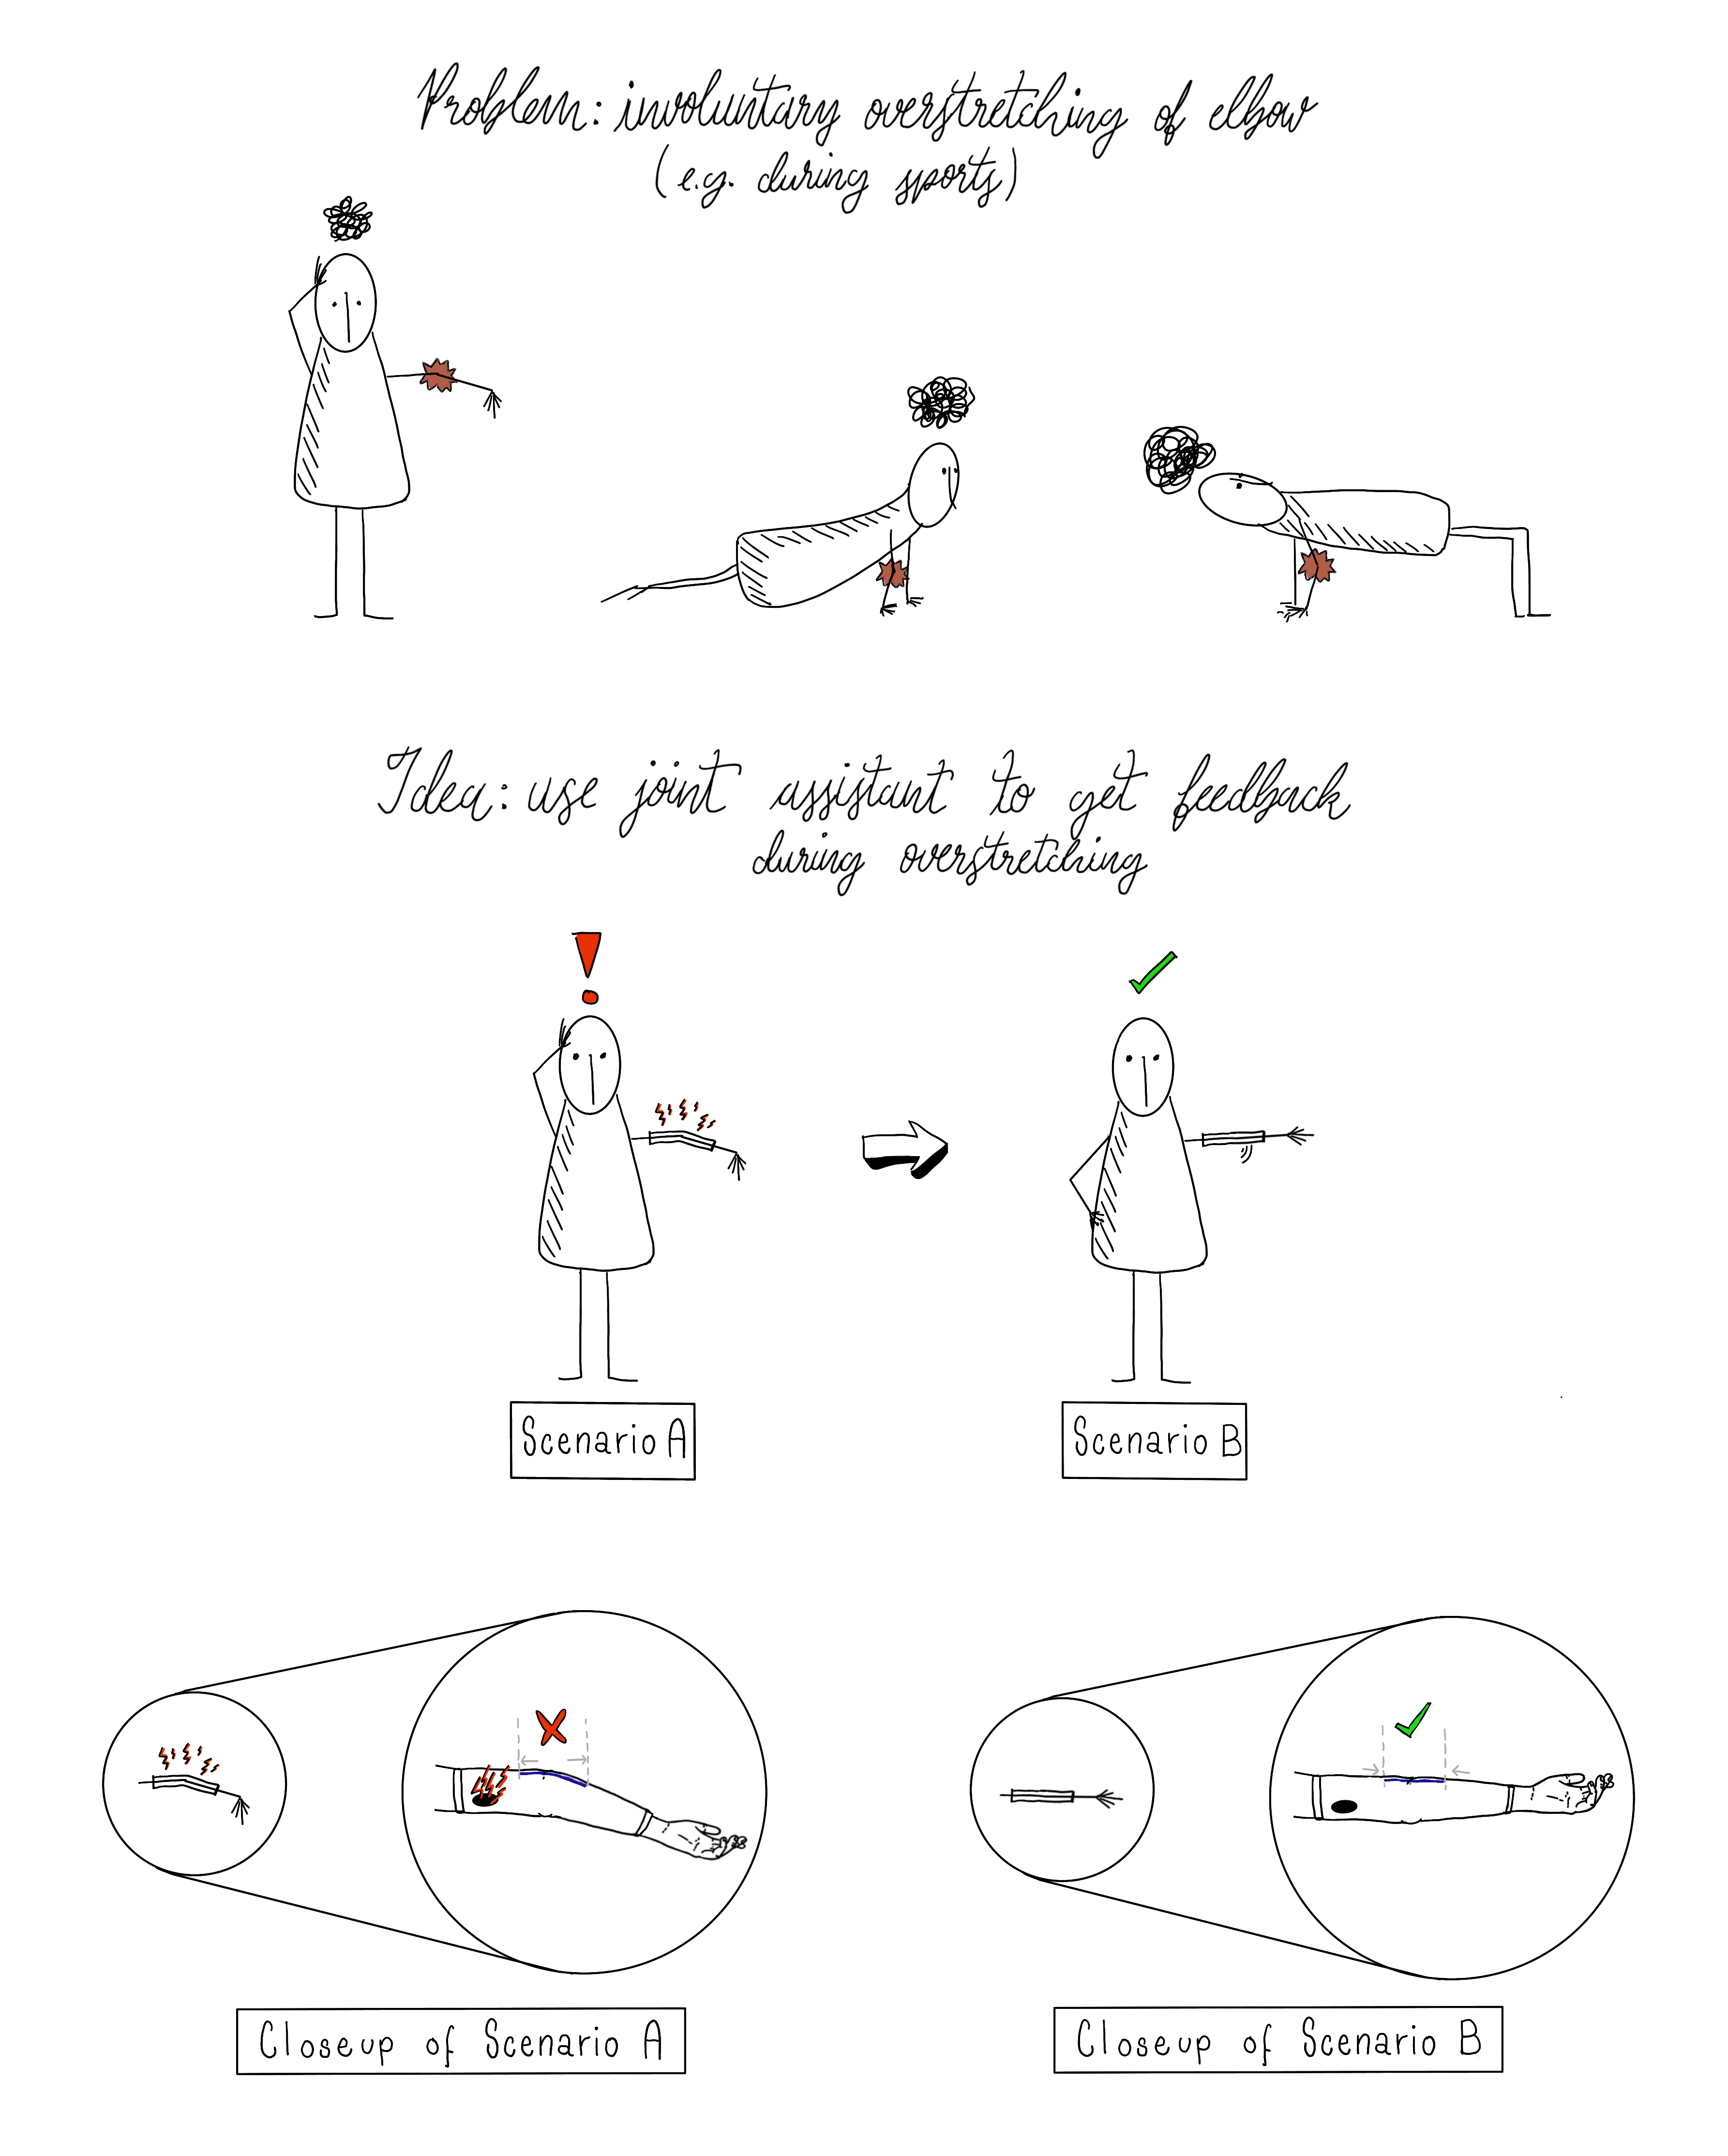 Problem: involuntary overstretching of elbow
(e.g. during sports)
Idea: use joint assistant to get feedback
during overstretching
Scenario A
Scenario B
Closeup of Scenario A
Closeup of Scenario B